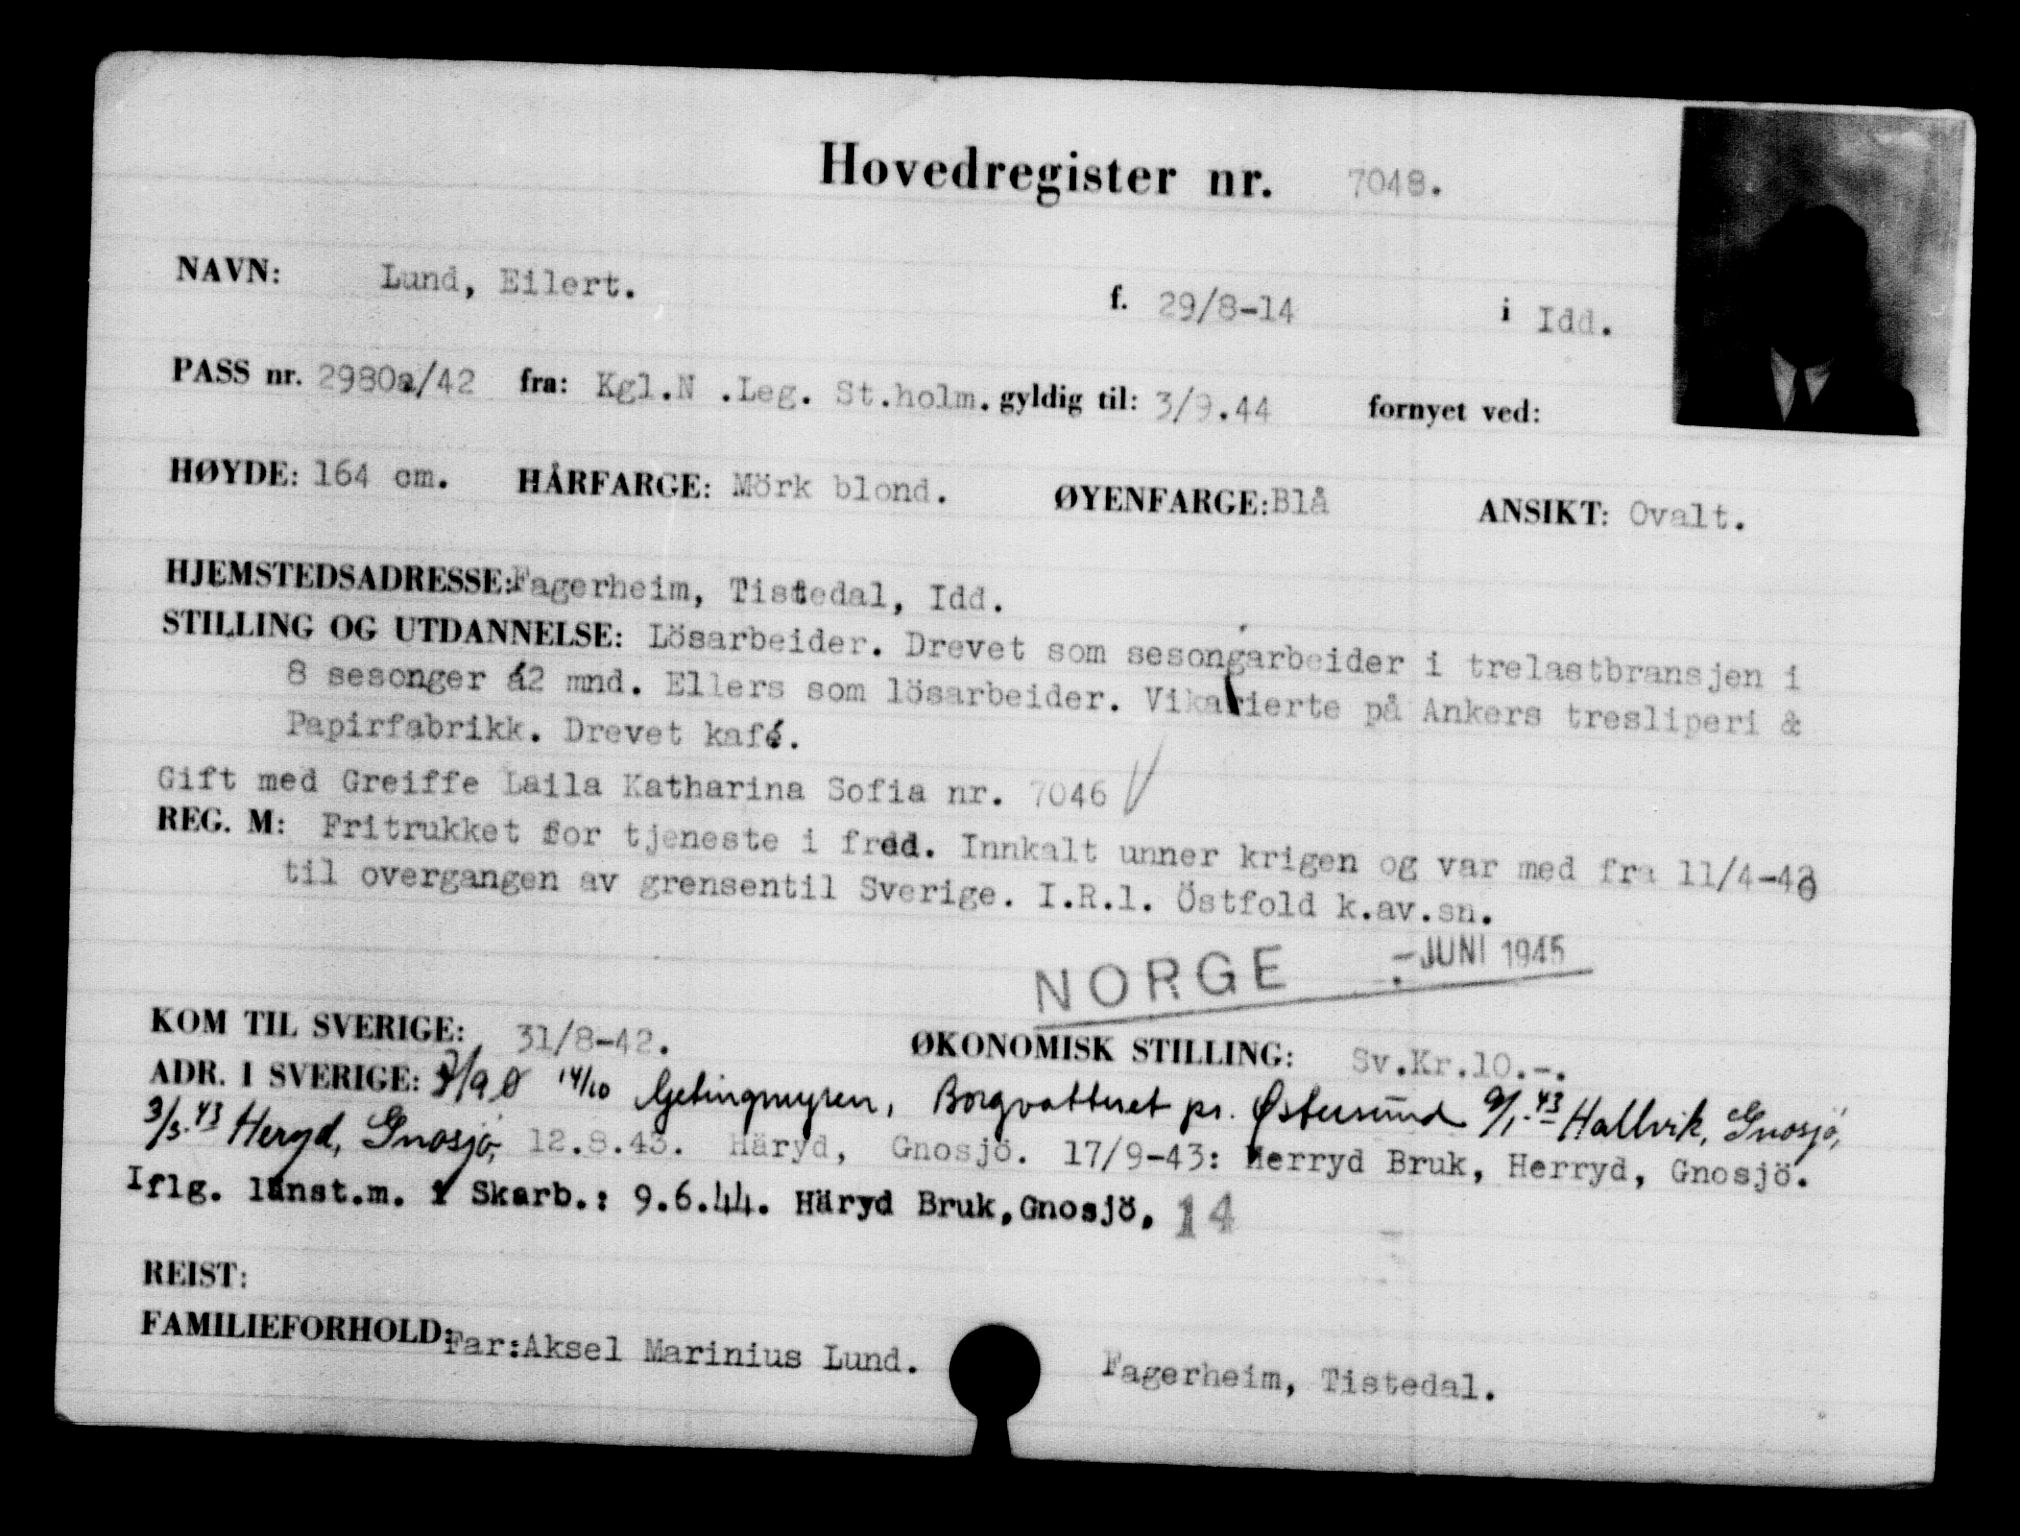 Hovedregister nr. 7048.
NAVN: Lund, Eilert. f. 29/8-14 i Idd.
PASS nr. 2980a/42 fra: Kgl.N .Leg. St.holm. gyldig til: 3/9.44 fornyet ved:
HØYDE: 164 cm. HÅRFARGE: Mörk blond. ØYENFARGE: Blå ANSIKT: Ovalt.
HJEMSTEDSADRESSE: Fagerheim, Tistedal, Idd.
STILLING OG UTDANNELSE: Lösarbeider. Drevet som sesongarbeider i trelastbransjen i
8 sesonger á2 mnd. Ellers som lösarbeider. Vikarierte på Ankers tresliperi &
Papirfabrikk. Drevet kafé.
Gift med Greiffe Laila Katharina Sofia nr. 7046 V
REG. M: Fritrukket for tjeneste i fred. Innkalt unner krigen og var med fra 11/4-40
til overgangen av grensentil Sverige. I.R.1. Östfold k.av.sn.
NORGE - JUNI 1945
KOM TIL SVERIGE: 31/8-42. ØKONOMISK STILLING: Sv.Kr.10.-.
ADR. I SVERIGE: 3/9 Ø 14/10 Getingmyren, Borgvattnet pr. Østersund 9/1-43 Hallvik, Gnosjö,
3/3-43 Heryd, Gnosjö, 12.8.43. Häryd, Gnosjö. 17/9-43: Herryd Bruk, Herryd, Gnosjö.
Iflg. länst.m. i Skarb.: 9.6.44. Häryd Bruk, Gnosjö, 14
REIST:
FAMILIEFORHOLD: Far:Aksel Marinius Lund. Fagerheim, Tistedal.